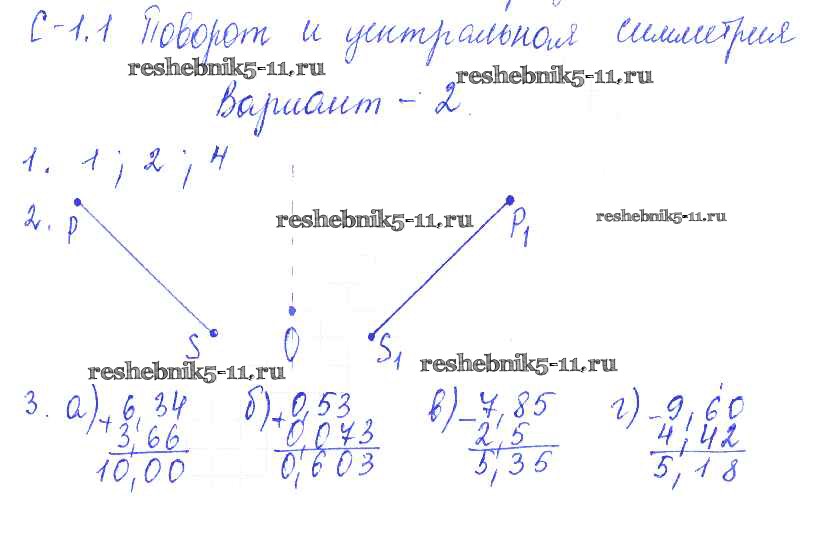 С-1.1 Поворот и центральная симметрия
reshebnik5-11.ru
reshebnik5-11.ru
Вариант - 2.
1. 1 ; 2 ; 4
2. P
reshebnik5-11.ru
P1
reshebnik5-11.ru
S O S1
reshebnik5-11.ru
reshebnik5-11.ru
3. а) + 6,34 б) + 0,53 в) - 7,85 г) - 9,60
3,66 0,073 2,5 4,42
10,00 0,603 5,35 5,18